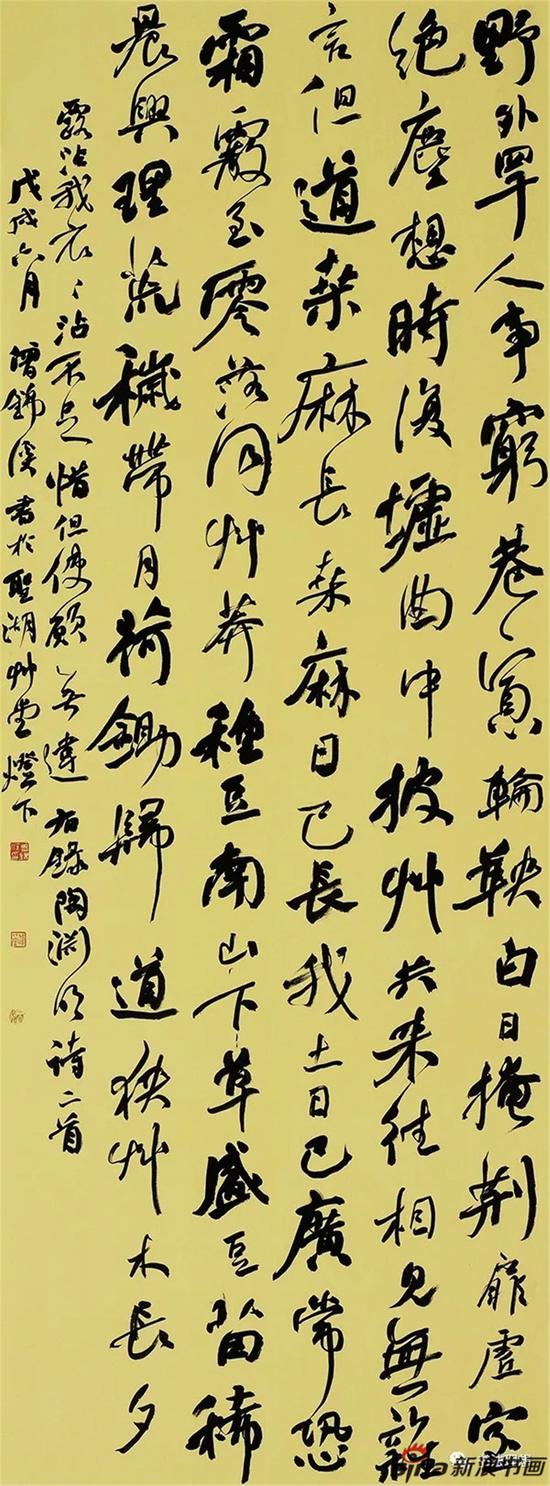 野外罕人事窮巷〻寡輪鞅白日掩荆扉虛室
絕塵想時復墟曲中披艸共来往相見無雜
言但道桑麻長桑麻日已長我土日已廣常恐
霜霰至零落同艸莽種豆南山下草盛豆苗稀
晨興理荒穢帶月荷鋤歸道狹艸木長夕
露沾我衣〻沾不足惜但使願無違 右錄陶渊明詩二首
戊戌六月 曾錦溪書於聖湖艸堂燈下
sina新浪书画